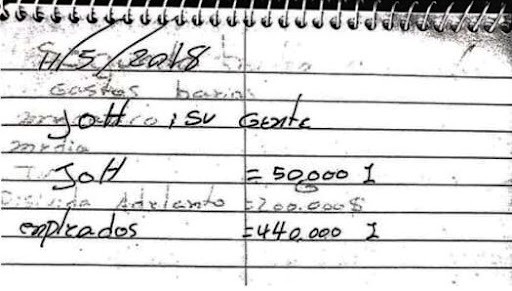 11/5/2018
Gastos
JOH i SU Gente
media
JOH = 50,000 I
Adelanto = 200.000 $
empleados = 440.000 I